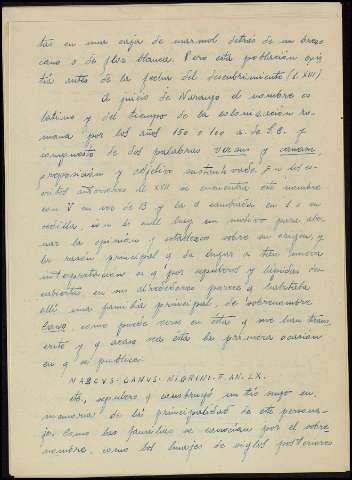 tas en una caja de marmol detrás de un brezo
cano o de flor blanca. Pero esta población exis
tía antes de la fecha del descubrimiento (s. XVI)
A juicio de Naranjo el nombre es
latino y del tiempo de la colonización ro-
mana por los años 150 o 100 a. de J.C. y
compuesto de dos palabras versus y canam
preposición y adjetivo sustantivado. En los es-
critos anteriores al XVII se encuentra este nombre
con V en vez de B y la z cambiada en s o en
cedilla, con lo cual hay un motivo para abo-
nar la opinión y establecer sobre su origen, y
la razón principal q da lugar a tan nueva
interpretacion es q por sepulcros y lápidas des-
cubiertas en sus alrededores parece q habitaba
allí una familia principal, de sobrenombre
Cano, como puede verse en ésta q me han trans
crito y q acaso sea ésta la primera ocasión
en q se publica.
MARCUS·CANUS·NIGRINI·F·AN·LX.
Este sepulcro q construyó un tío suyo en
memoria de la principalidad de este persona-
je. Como las familias se conocían por el sobre-
nombre, como los linajes de siglos posteriores